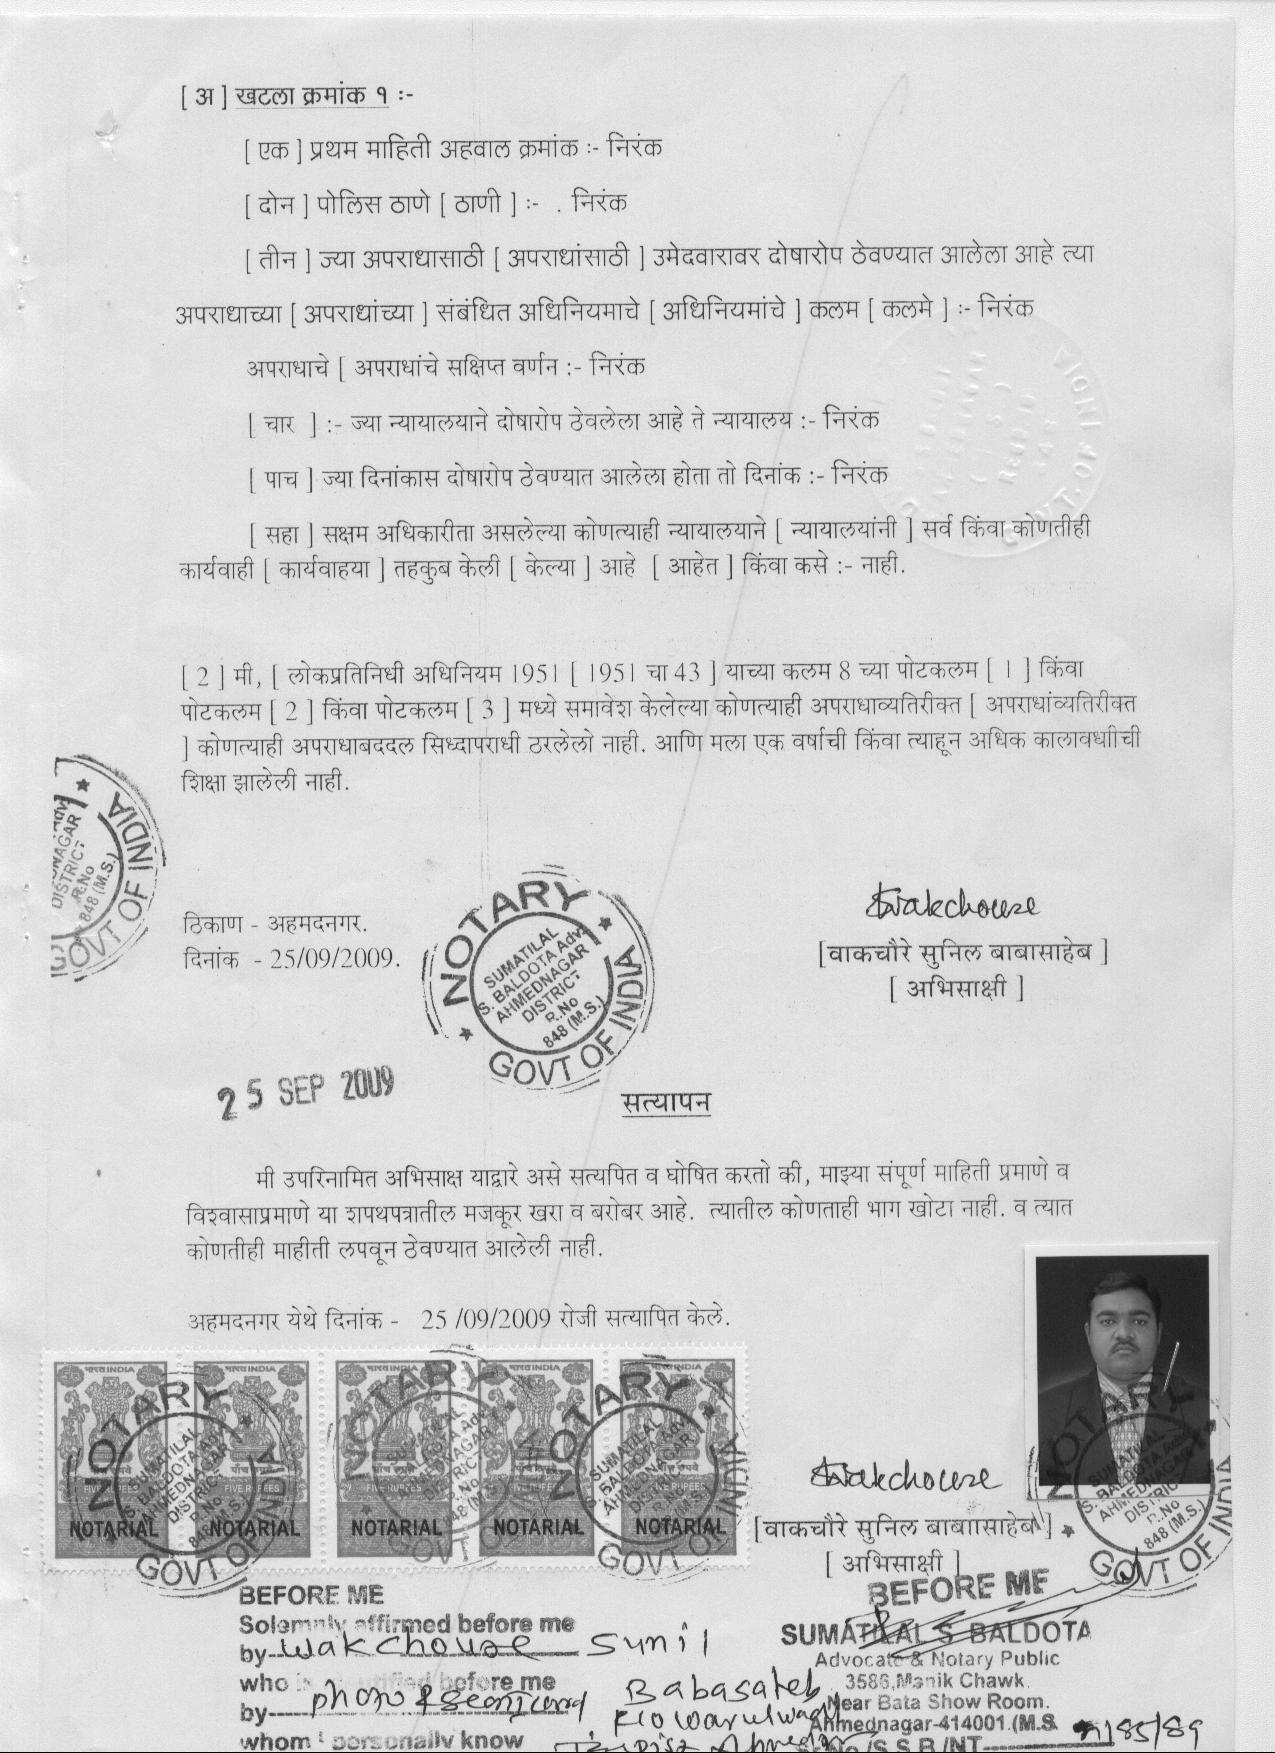 [ अ ] खटला क्रमांक १ :-
[ एक ] प्रथम माहिती अहवाल क्रमांक :- निरंक
[ दोन ] पोलिस ठाणे [ ठाणी ] :- . निरंक
[ तीन ] ज्या अपराधासाठी [ अपराधांसाठी ] उमेदवारावर दोषारोप ठेवण्यात आलेला आहे त्या
अपराधाच्या [ अपराधांच्या ] संबंधित अधिनियमाचे [ अधिनियमांचे ] कलम [ कलमे ] :- निरंक
अपराधाचे [ अपराधांचे सक्षिप्त वर्णन :- निरंक
[ चार ] :- ज्या न्यायालयाने दोषारोप ठेवलेला आहे ते न्यायालय :- निरंक
[ पाच ] ज्या दिनांकास दोषारोप ठेवण्यात आलेला होता तो दिनांक :- निरंक
[ सहा ] सक्षम अधिकारीता असलेल्या कोणत्याही न्यायालयाने [ न्यायालयांनी ] सर्व किंवा कोणतीही
कार्यवाही [ कार्यवाहया ] तहकुब केली [ केल्या ] आहे [ आहेत ] किंवा कसे :- नाही.
[ 2 ] मी, [ लोकप्रतिनिधी अधिनियम 1951 [ 1951 चा 43 ] याच्या कलम 8 च्या पोटकलम [ 1 ] किंवा
पोटकलम [ 2 ] किंवा पोटकलम [ 3 ] मध्ये समावेश केलेल्या कोणत्याही अपराधाव्यतिरीक्त [ अपराधांव्यतिरीक्त
] कोणत्याही अपराधाबददल सिध्दापराधी ठरलेलो नाही. आणि मला एक वर्षाची किंवा त्याहून अधिक कालावधीची
शिक्षा झालेली नाही.
NAGAR
DISTRICT
R.No
848 (M.S.)
GOVT OF INDIA
NOTARY
SUMATILAL
S. BALDOTA Adv.
AHMEDNAGAR
DISTRICT
R.No
848 (M.S.)
GOVT OF INDIA
ठिकाण - अहमदनगर.
दिनांक - 25/09/2009.
Wakchouse
[वाकचौरे सुनिल बाबासाहेब ]
[ अभिसाक्षी ]
25 SEP 2009
सत्यापन
मी उपरिनामित अभिसाक्ष याद्वारे असे सत्यपित व घोषित करतो की, माझ्या संपूर्ण माहिती प्रमाणे व
विश्वासाप्रमाणे या शपथपत्रातील मजकूर खरा व बरोबर आहे. त्यातील कोणताही भाग खोटा नाही. व त्यात
कोणतीही माहीती लपवून ठेवण्यात आलेली नाही.
अहमदनगर येथे दिनांक - 25 /09/2009 रोजी सत्यापित केले.
भारत INDIA भारत INDIA भारत INDIA भारत INDIA भारत INDIA
FIVE RUPEES FIVE RUPEES FIVE RUPEES FIVE RUPEES FIVE RUPEES
NOTARIAL NOTARIAL NOTARIAL NOTARIAL NOTARIAL
NOTARY
GOVT OF INDIA
Wakchouse
[वाकचौरे सुनिल बाबाासाहेब ]
[ अभिसाक्षी ]
BEFORE ME
Solemnly affirmed before me
by Wakchouse Sunil
who identified before me
Babasaheb
by
whom I personally know
BEFORE ME
SUMATILAL S BALDOTA
Advocate & Notary Public
3586, Manik Chawk
Near Bata Show Room.
Ahmednagar-414001.(M.S.